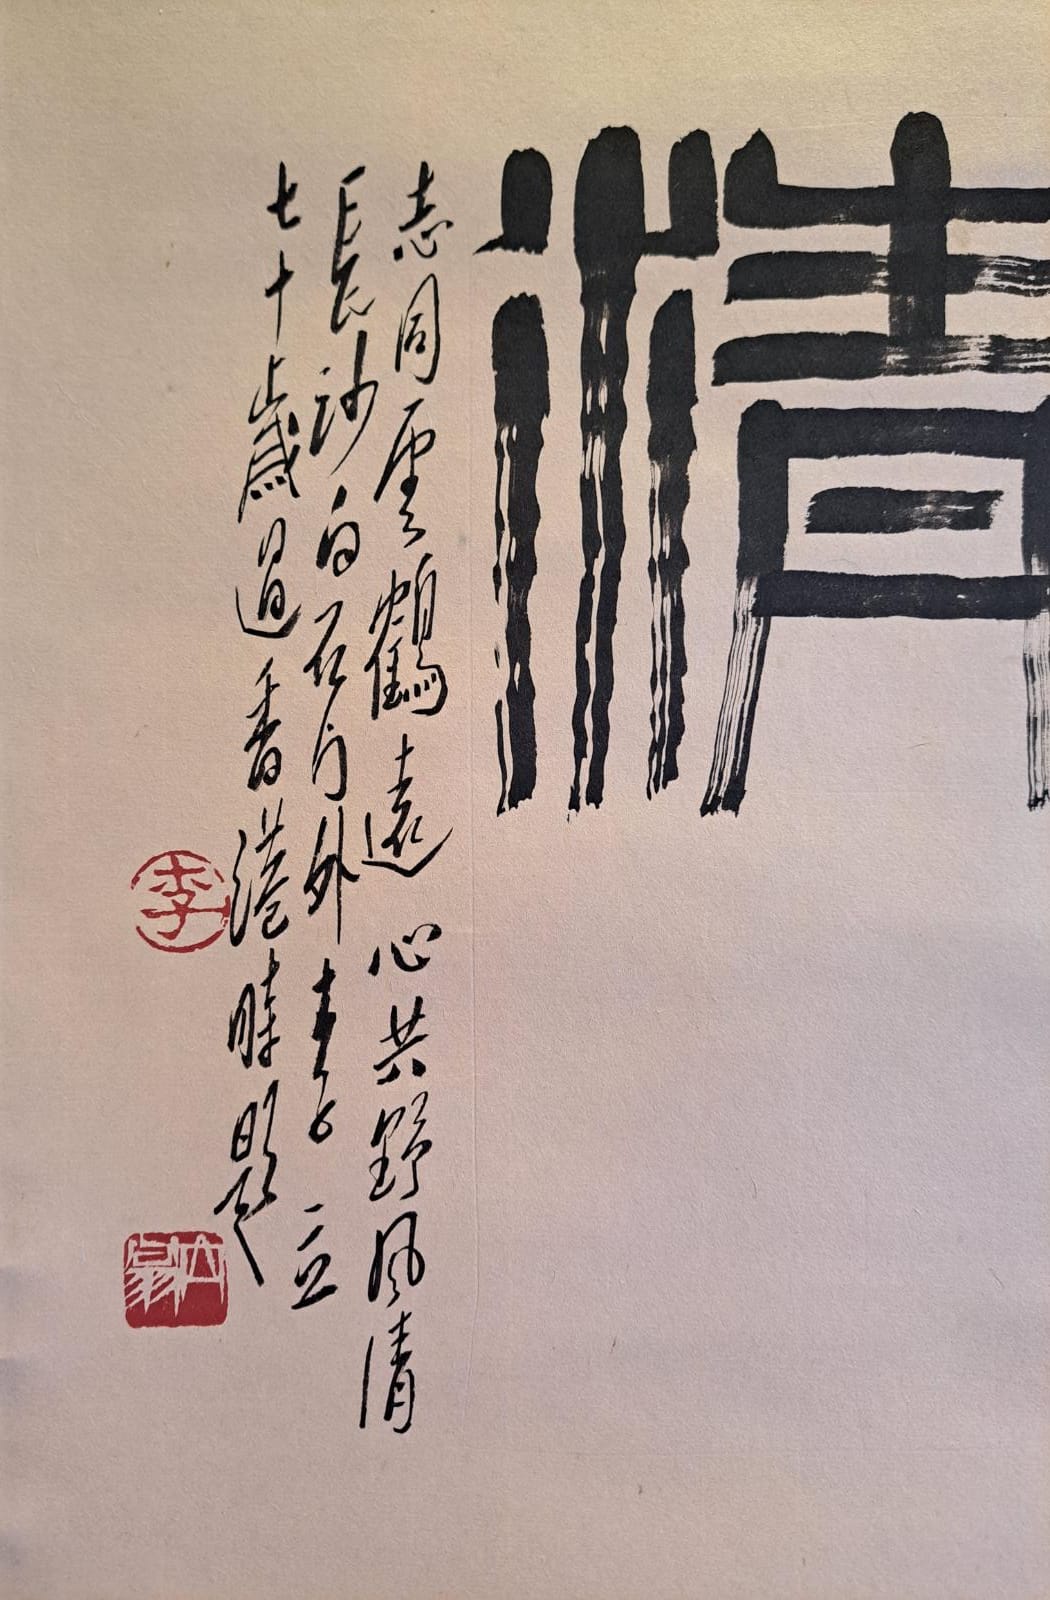 清
志同雲鶴遠心共野風清
長沙白石門外李立
七十歲過香港時題
李